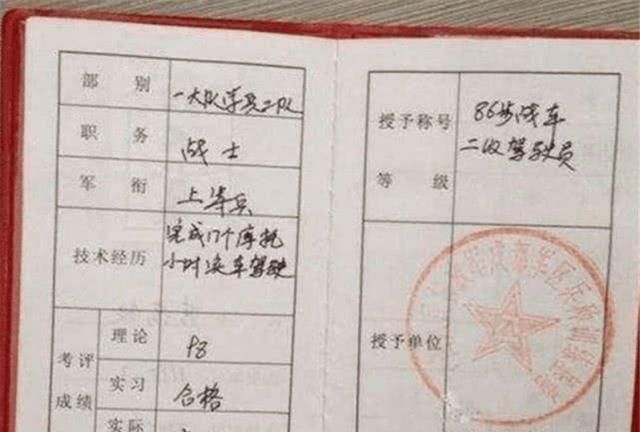 部别
一大队学兵二队
职务
战士
军衔
上等兵
技术经历
完成17个摩托
小时实车驾驶
考评
成绩
理论
98
实习
合格
实际
授予称号
等级
86步战车
二级驾驶员
授予单位